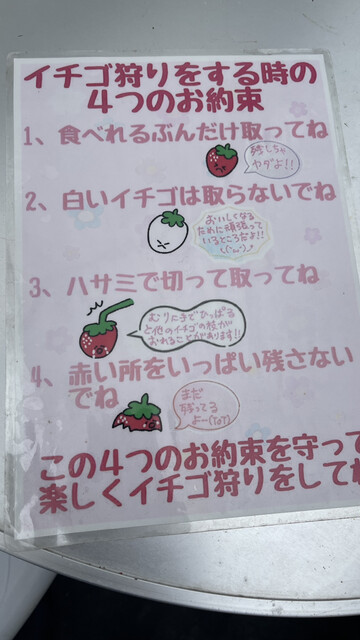 イチゴ狩りをする時の
4つのお約束
1、食べれるぶんだけ取ってね
残しちゃ
ヤダよ!!
2、白いイチゴは取らないでね
おいしくなる
ために頑張って
いるところだよ!!
3、ハサミで切って取ってね
むりに手でひっぱる
と他のイチゴの枝が
おれることがあります!!
4、赤い所をいっぱい残さない
でね
まだ
残ってる
よー(ToT)
この4つのお約束を守って
楽しくイチゴ狩りをしてね